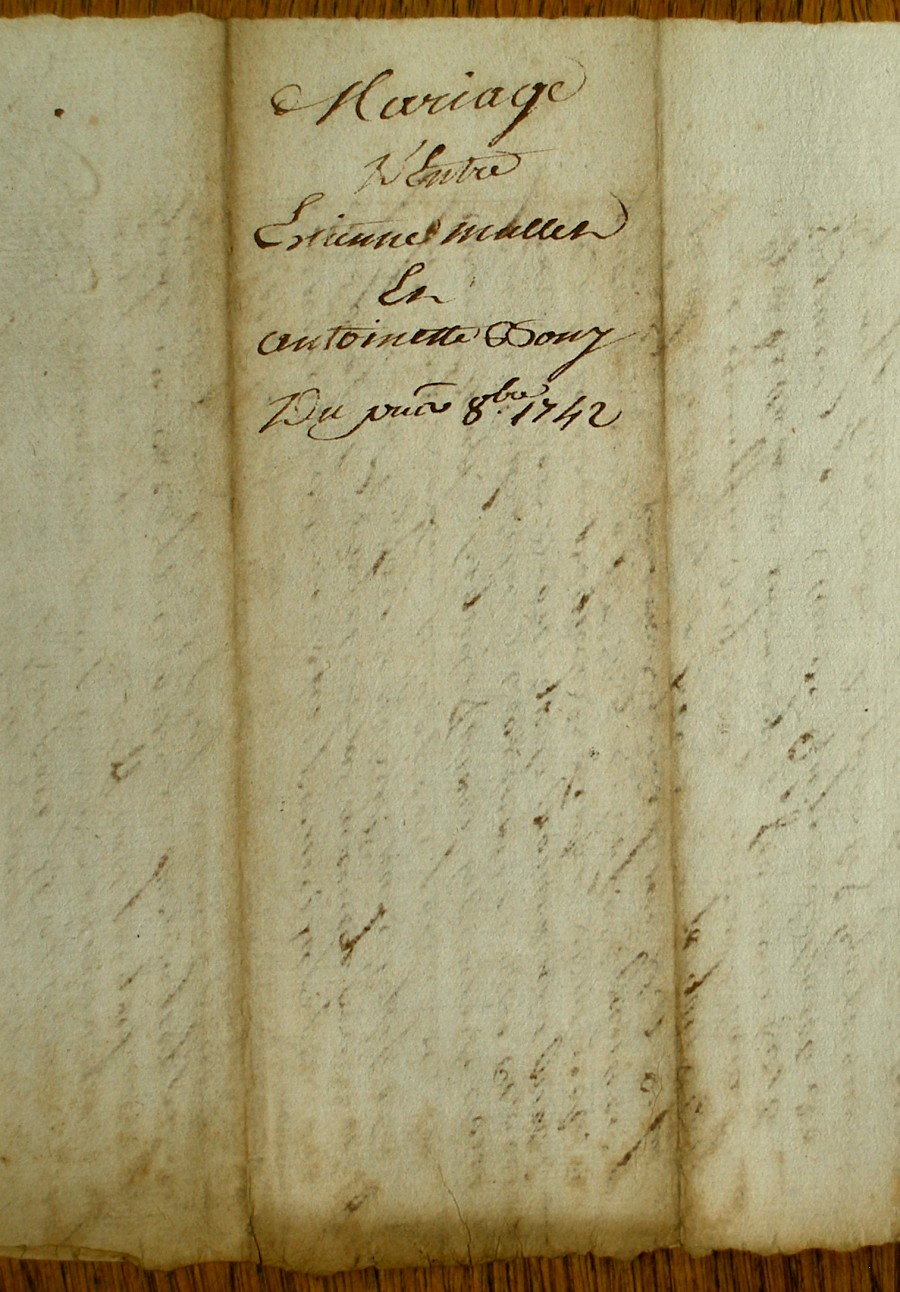 Mariage
D'Entre
Estienne muller
Et
antoinette Douz
Du 8.bre 1742